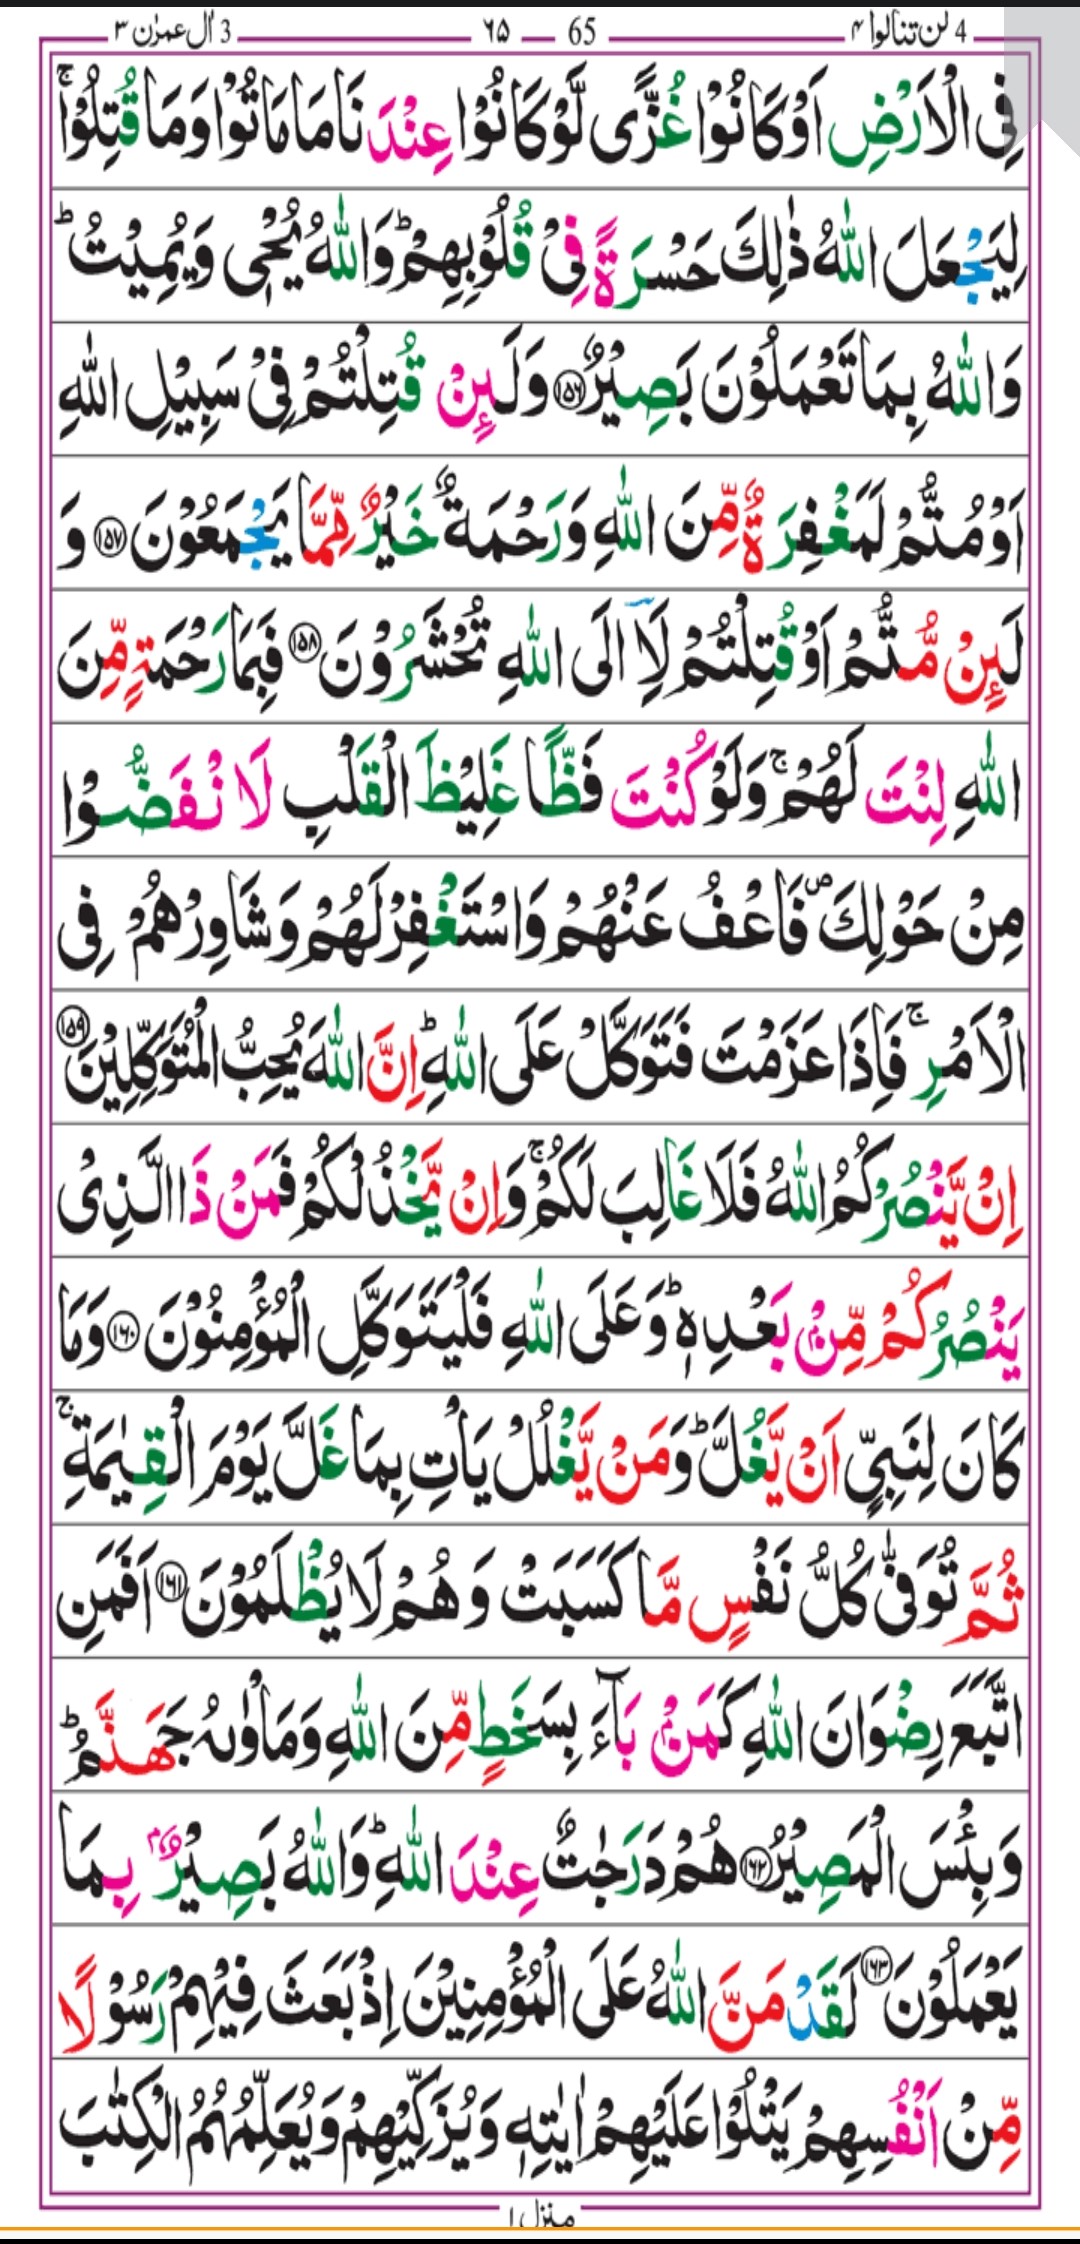 4 لن تنالوا ۴ 65 ۶۵ 3 اٰل عمرٰن ۳
فِى الۡاَرۡضِ اَوۡ كَانُوۡا غُزًّى لَّوۡ كَانُوۡا عِنۡدَنَا مَا مَاتُوۡا وَمَا قُتِلُوۡا ۚ
لِيَجۡعَلَ اللّٰهُ ذٰ لِكَ حَسۡرَةً فِىۡ قُلُوۡبِهِمۡ‌ؕ وَاللّٰهُ يُحۡىٖ وَيُمِيۡتُ‌ؕ
وَاللّٰهُ بِمَا تَعۡمَلُوۡنَ بَصِيۡرٌ ﴿۱۵۶﴾ وَلَٮِٕنۡ قُتِلۡتُمۡ فِىۡ سَبِيۡلِ اللّٰهِ
اَوۡ مُتُّمۡ لَمَغۡفِرَةٌ مِّنَ اللّٰهِ وَرَحۡمَةٌ خَيۡرٌ مِّمَّا يَجۡمَعُوۡنَ ﴿۱۵۷﴾ وَ
لَٮِٕنۡ مُّتُّمۡ اَوۡ قُتِلۡتُمۡ لَا۟اِلَى اللّٰهِ تُحۡشَرُوۡنَ ﴿۱۵۸﴾ فَبِمَا رَحۡمَةٍ مِّنَ
اللّٰهِ لِنۡتَ لَهُمۡ‌ۚ وَلَوۡ كُنۡتَ فَظًّا غَلِيۡظَ الۡقَلۡبِ لَا نۡفَضُّوۡا
مِنۡ حَوۡلِكَ‌ ۖ فَاعۡفُ عَنۡهُمۡ وَاسۡتَغۡفِرۡ لَهُمۡ وَشَاوِرۡهُمۡ فِى
الۡاَمۡرِ‌ۚ فَاِذَا عَزَمۡتَ فَتَوَكَّلۡ عَلَى اللّٰهِ‌ؕ اِنَّ اللّٰهَ يُحِبُّ الۡمُتَوَكِّلِيۡنَ ﴿۱۵۹﴾
اِنۡ يَّنۡصُرۡكُمُ اللّٰهُ فَلَا غَالِبَ لَكُمۡ‌ۚ وَاِنۡ يَّخۡذُلۡكُمۡ فَمَنۡ ذَا الَّذِىۡ
يَنۡصُرُكُمۡ مِّنۡۢ بَعۡدِهٖ‌ؕ وَعَلَى اللّٰهِ فَلۡيَتَوَكَّلِ الۡمُؤۡمِنُوۡنَ ﴿۱۶۰﴾ وَمَا
كَانَ لِنَبِىٍّ اَنۡ يَّغُلَّ‌ؕ وَمَنۡ يَّغۡلُلۡ يَاۡتِ بِمَا غَلَّ يَوۡمَ الۡقِيٰمَةِ‌ۚ
ثُمَّ تُوَفّٰى كُلُّ نَفۡسٍ مَّا كَسَبَتۡ وَهُمۡ لَا يُظۡلَمُوۡنَ ﴿۱۶۱﴾ اَفَمَنِ
اتَّبَعَ رِضۡوَانَ اللّٰهِ كَمَنۡۢ بَآءَ بِسَخَطٍ مِّنَ اللّٰهِ وَمَاۡوٰٮهُ جَهَنَّمُ‌ؕ
وَبِئۡسَ الۡمَصِيۡرُ ﴿۱۶۲﴾ هُمۡ دَرَجٰتٌ عِنۡدَ اللّٰهِ‌ؕ وَاللّٰهُ بَصِيۡرٌۢ بِمَا
يَعۡمَلُوۡنَ ﴿۱۶۳﴾ لَقَدۡ مَنَّ اللّٰهُ عَلَى الۡمُؤۡمِنِيۡنَ اِذۡ بَعَثَ فِيۡهِمۡ رَسُوۡلًا
مِّنۡ اَنۡفُسِهِمۡ يَتۡلُوۡا عَلَيۡهِمۡ اٰيٰتِهٖ وَيُزَكِّيۡهِمۡ وَيُعَلِّمُهُمُ الۡكِتٰبَ
منزل ۱